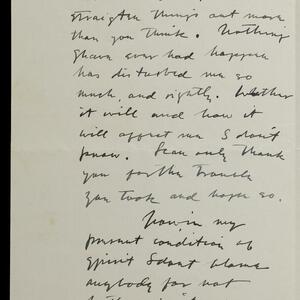 straighten things out more
than you think. Nothing
ever had happen
has disturbed me so
much, and rightly. Whether
it will and how it
will affect me I don't
know. I can only thank
you for the trouble
you took and hope so.
in my
present condition of
spirit I dont blame
anybody for not